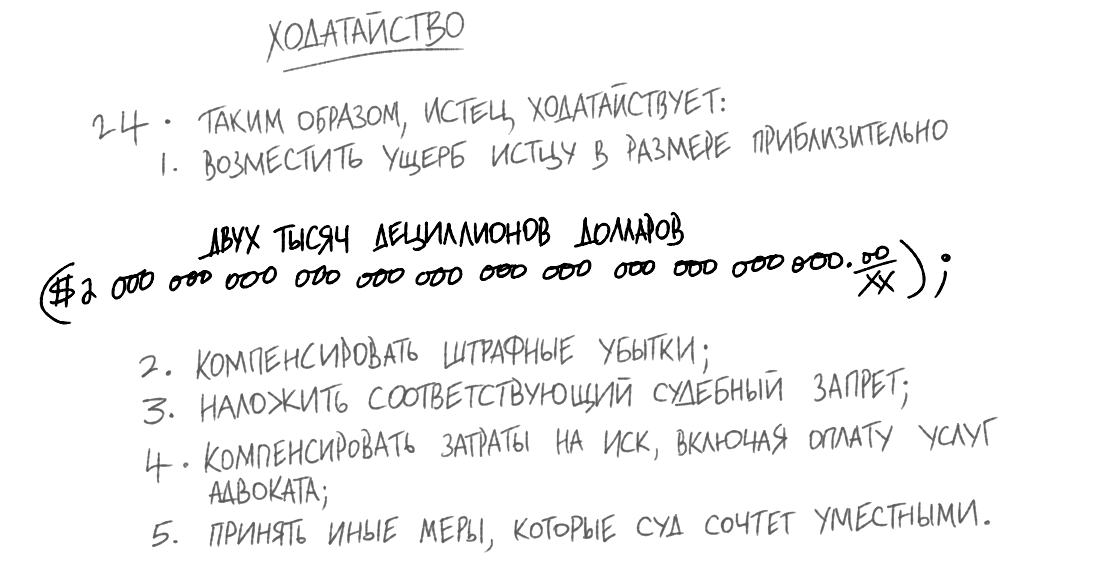 ХОДАТАЙСТВО
24. ТАКИМ ОБРАЗОМ, ИСТЕЦ ХОДАТАЙСТВУЕТ:
1. ВОЗМЕСТИТЬ УЩЕРБ ИСТЦУ В РАЗМЕРЕ ПРИБЛИЗИТЕЛЬНО
ДВУХ ТЫСЯЧ ДЕЦИЛЛИОНОВ ДОЛЛАРОВ
($2 000 000 000 000 000 000 000 000 000 000 000 000.00/XX);
2. КОМПЕНСИРОВАТЬ ШТРАФНЫЕ УБЫТКИ;
3. НАЛОЖИТЬ СООТВЕТСТВУЮЩИЙ СУДЕБНЫЙ ЗАПРЕТ;
4. КОМПЕНСИРОВАТЬ ЗАТРАТЫ НА ИСК, ВКЛЮЧАЯ ОПЛАТУ УСЛУГ
АДВОКАТА;
5. ПРИНЯТЬ ИНЫЕ МЕРЫ, КОТОРЫЕ СУД СОЧТЕТ УМЕСТНЫМИ.